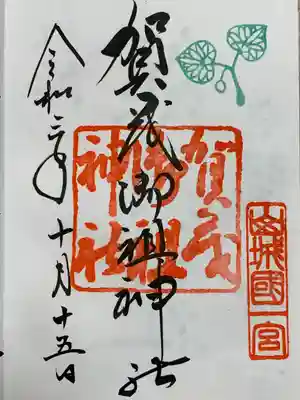 山城國一宮
賀茂御祖神社
賀茂
御祖
神社
令和二年十月十五日